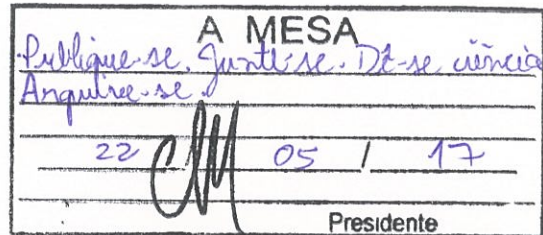 A MESA
Publique-se. Junte-se. Dê-se ciência
Arquive-se.
22 / 05 / 17
Presidente